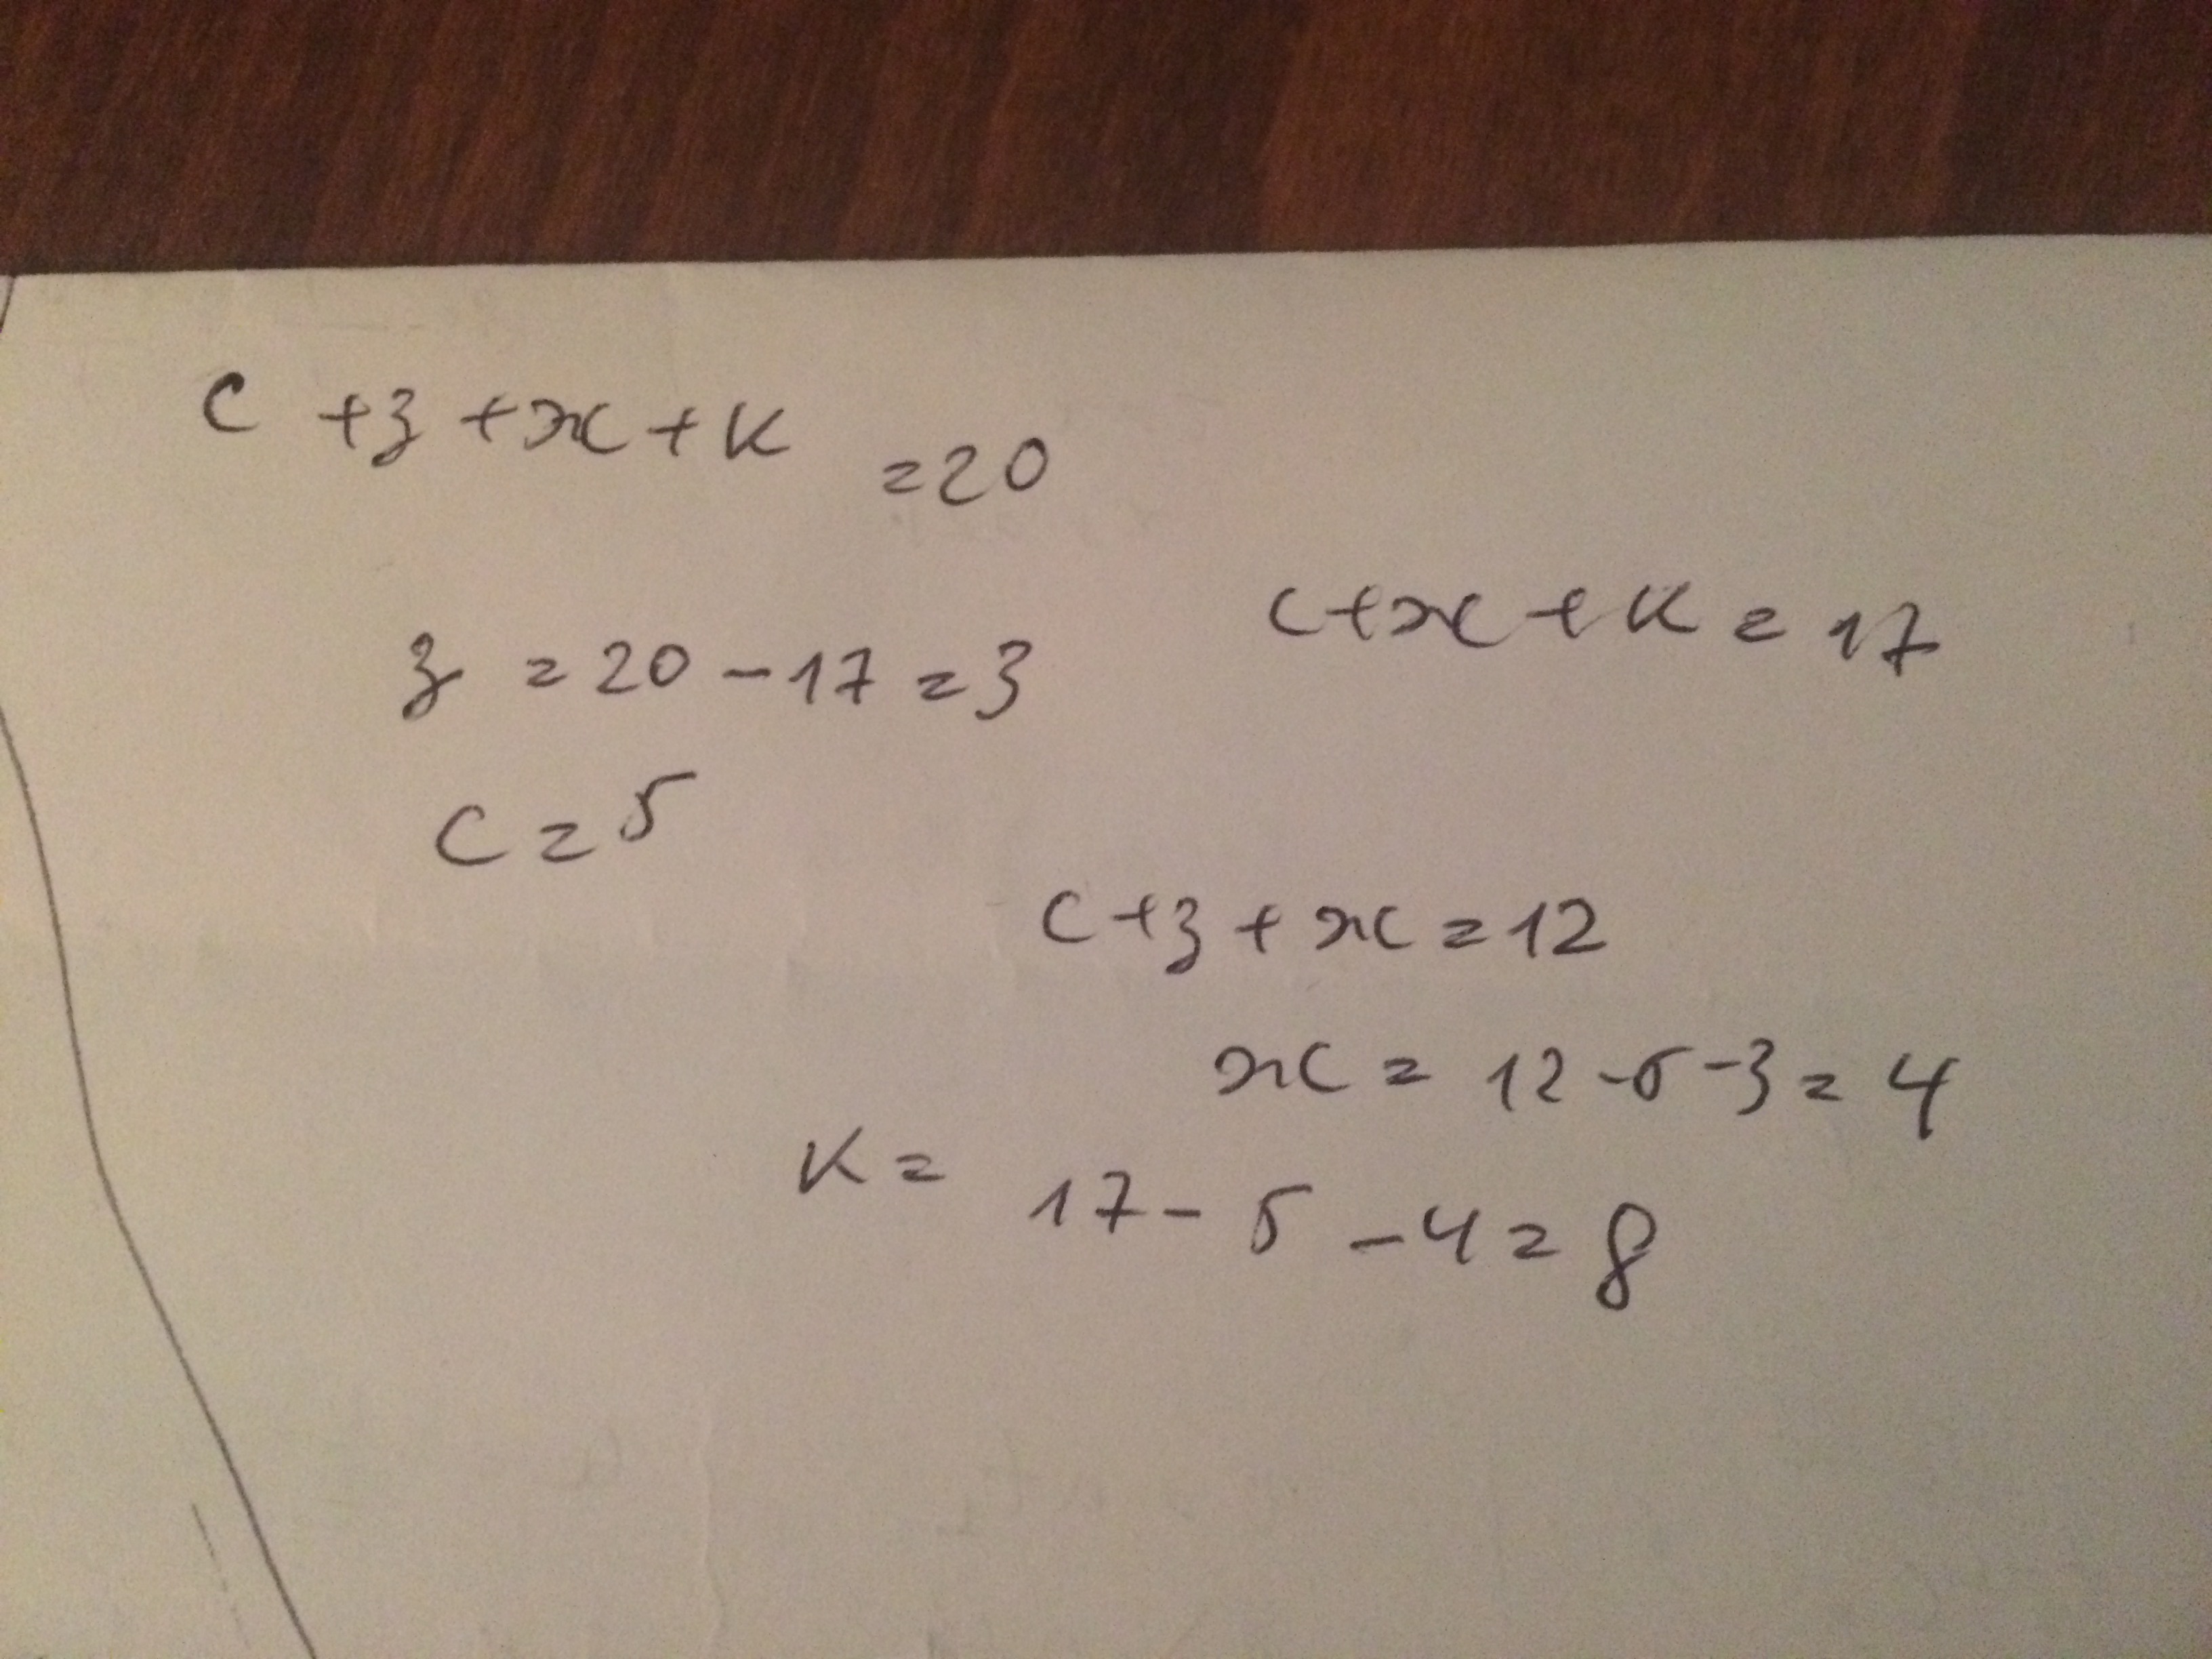 с + з + ж + к = 20
с + ж + к = 17
з = 20 - 17 = 3
с = 5
с + з + ж = 12
ж = 12 - 5 - 3 = 4
к = 17 - 5 - 4 = 8